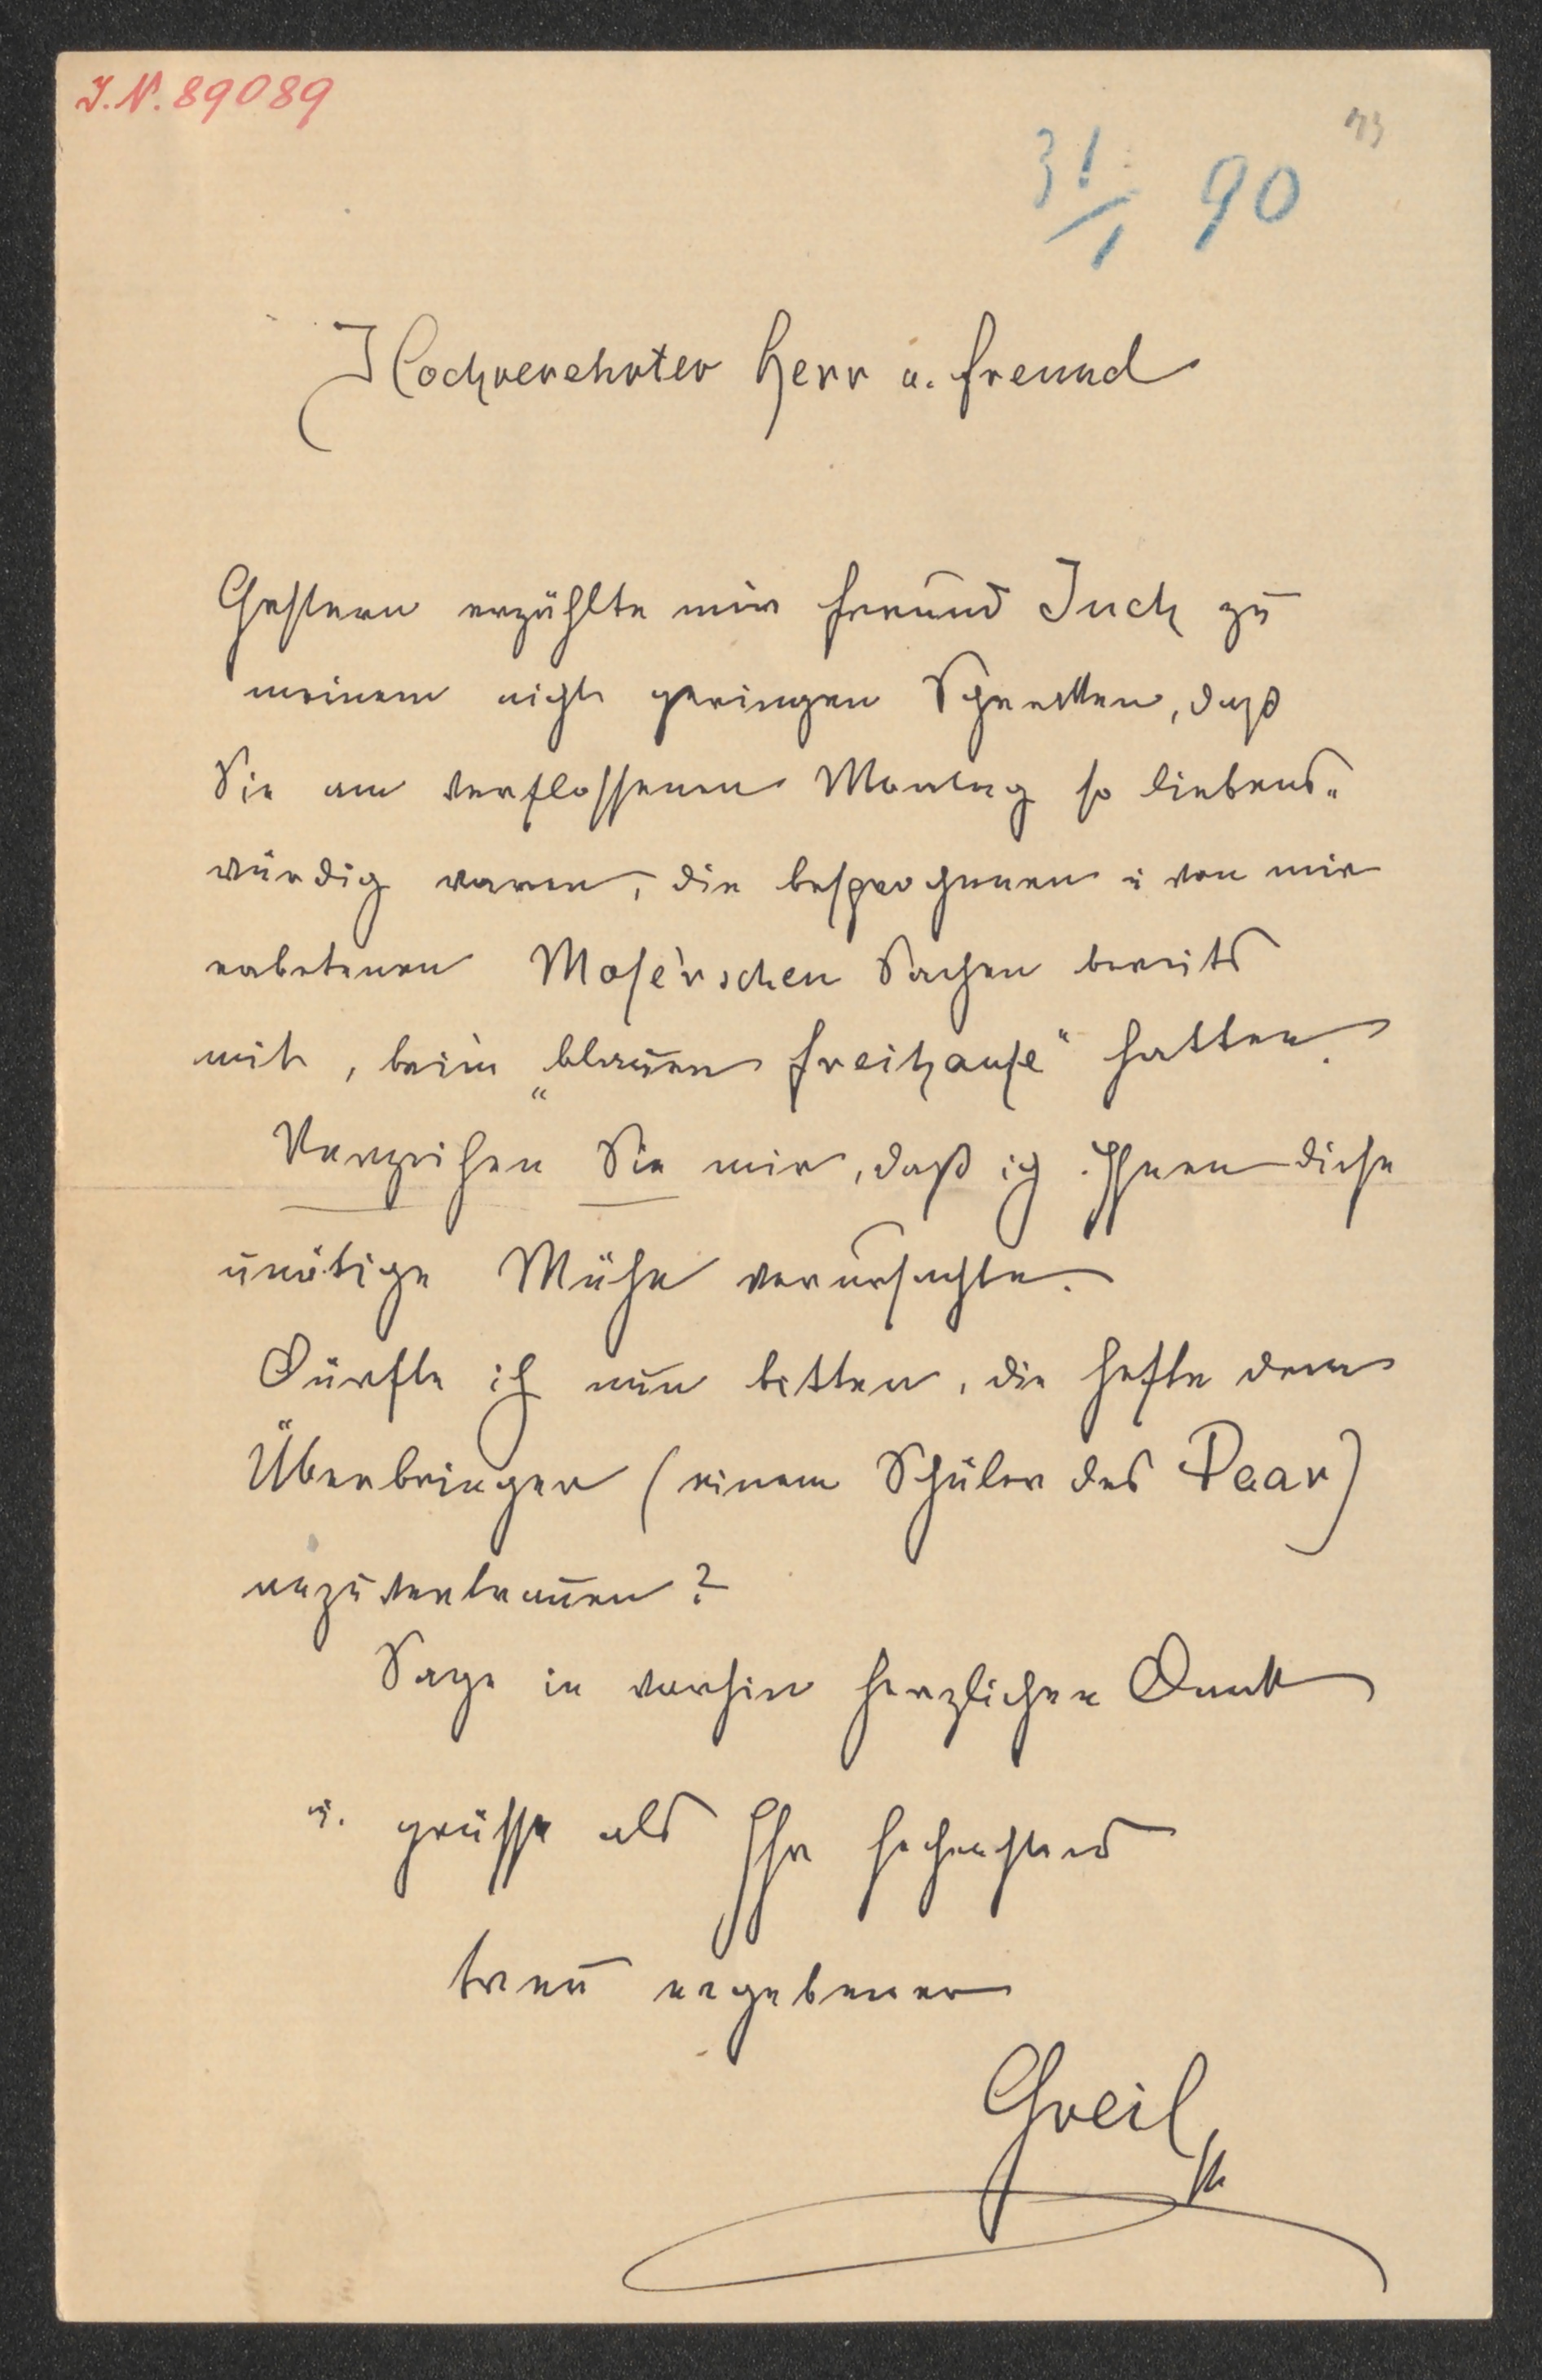 J.N. 89089
31/1 90
Hochverehrter Herr u. Freund
Gestern erzählte mir Freund Juch zu
meinem nicht geringen Schrecken, daß
Sie am verflossenen Montag so liebens-
würdig waren, die besprochenen u von mir
erbetenen Moser'schen Sachen bereits
mit, beim „blauen Freihause“ hatten.
Verzeihen Sie mir, daß ich Ihnen diese
unötige Mühe verursachte.
Dürfte ich nun bitten, die Hefte dem
Überbringer (einem Schüler des Paar)
anzuvertrauen?
Sage in vorhin herzlichen Dank
u. grüsse als Ihr hochachtend
treu ergebener
Greil